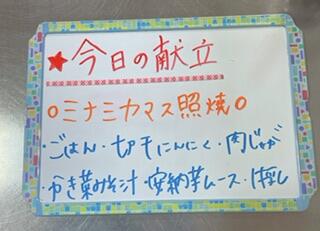 ★今日の献立
○ミナミカマス照焼○
・ごはん・切干にんにく・肉じゃが
・かき菜みそ汁・安納芋ムース・